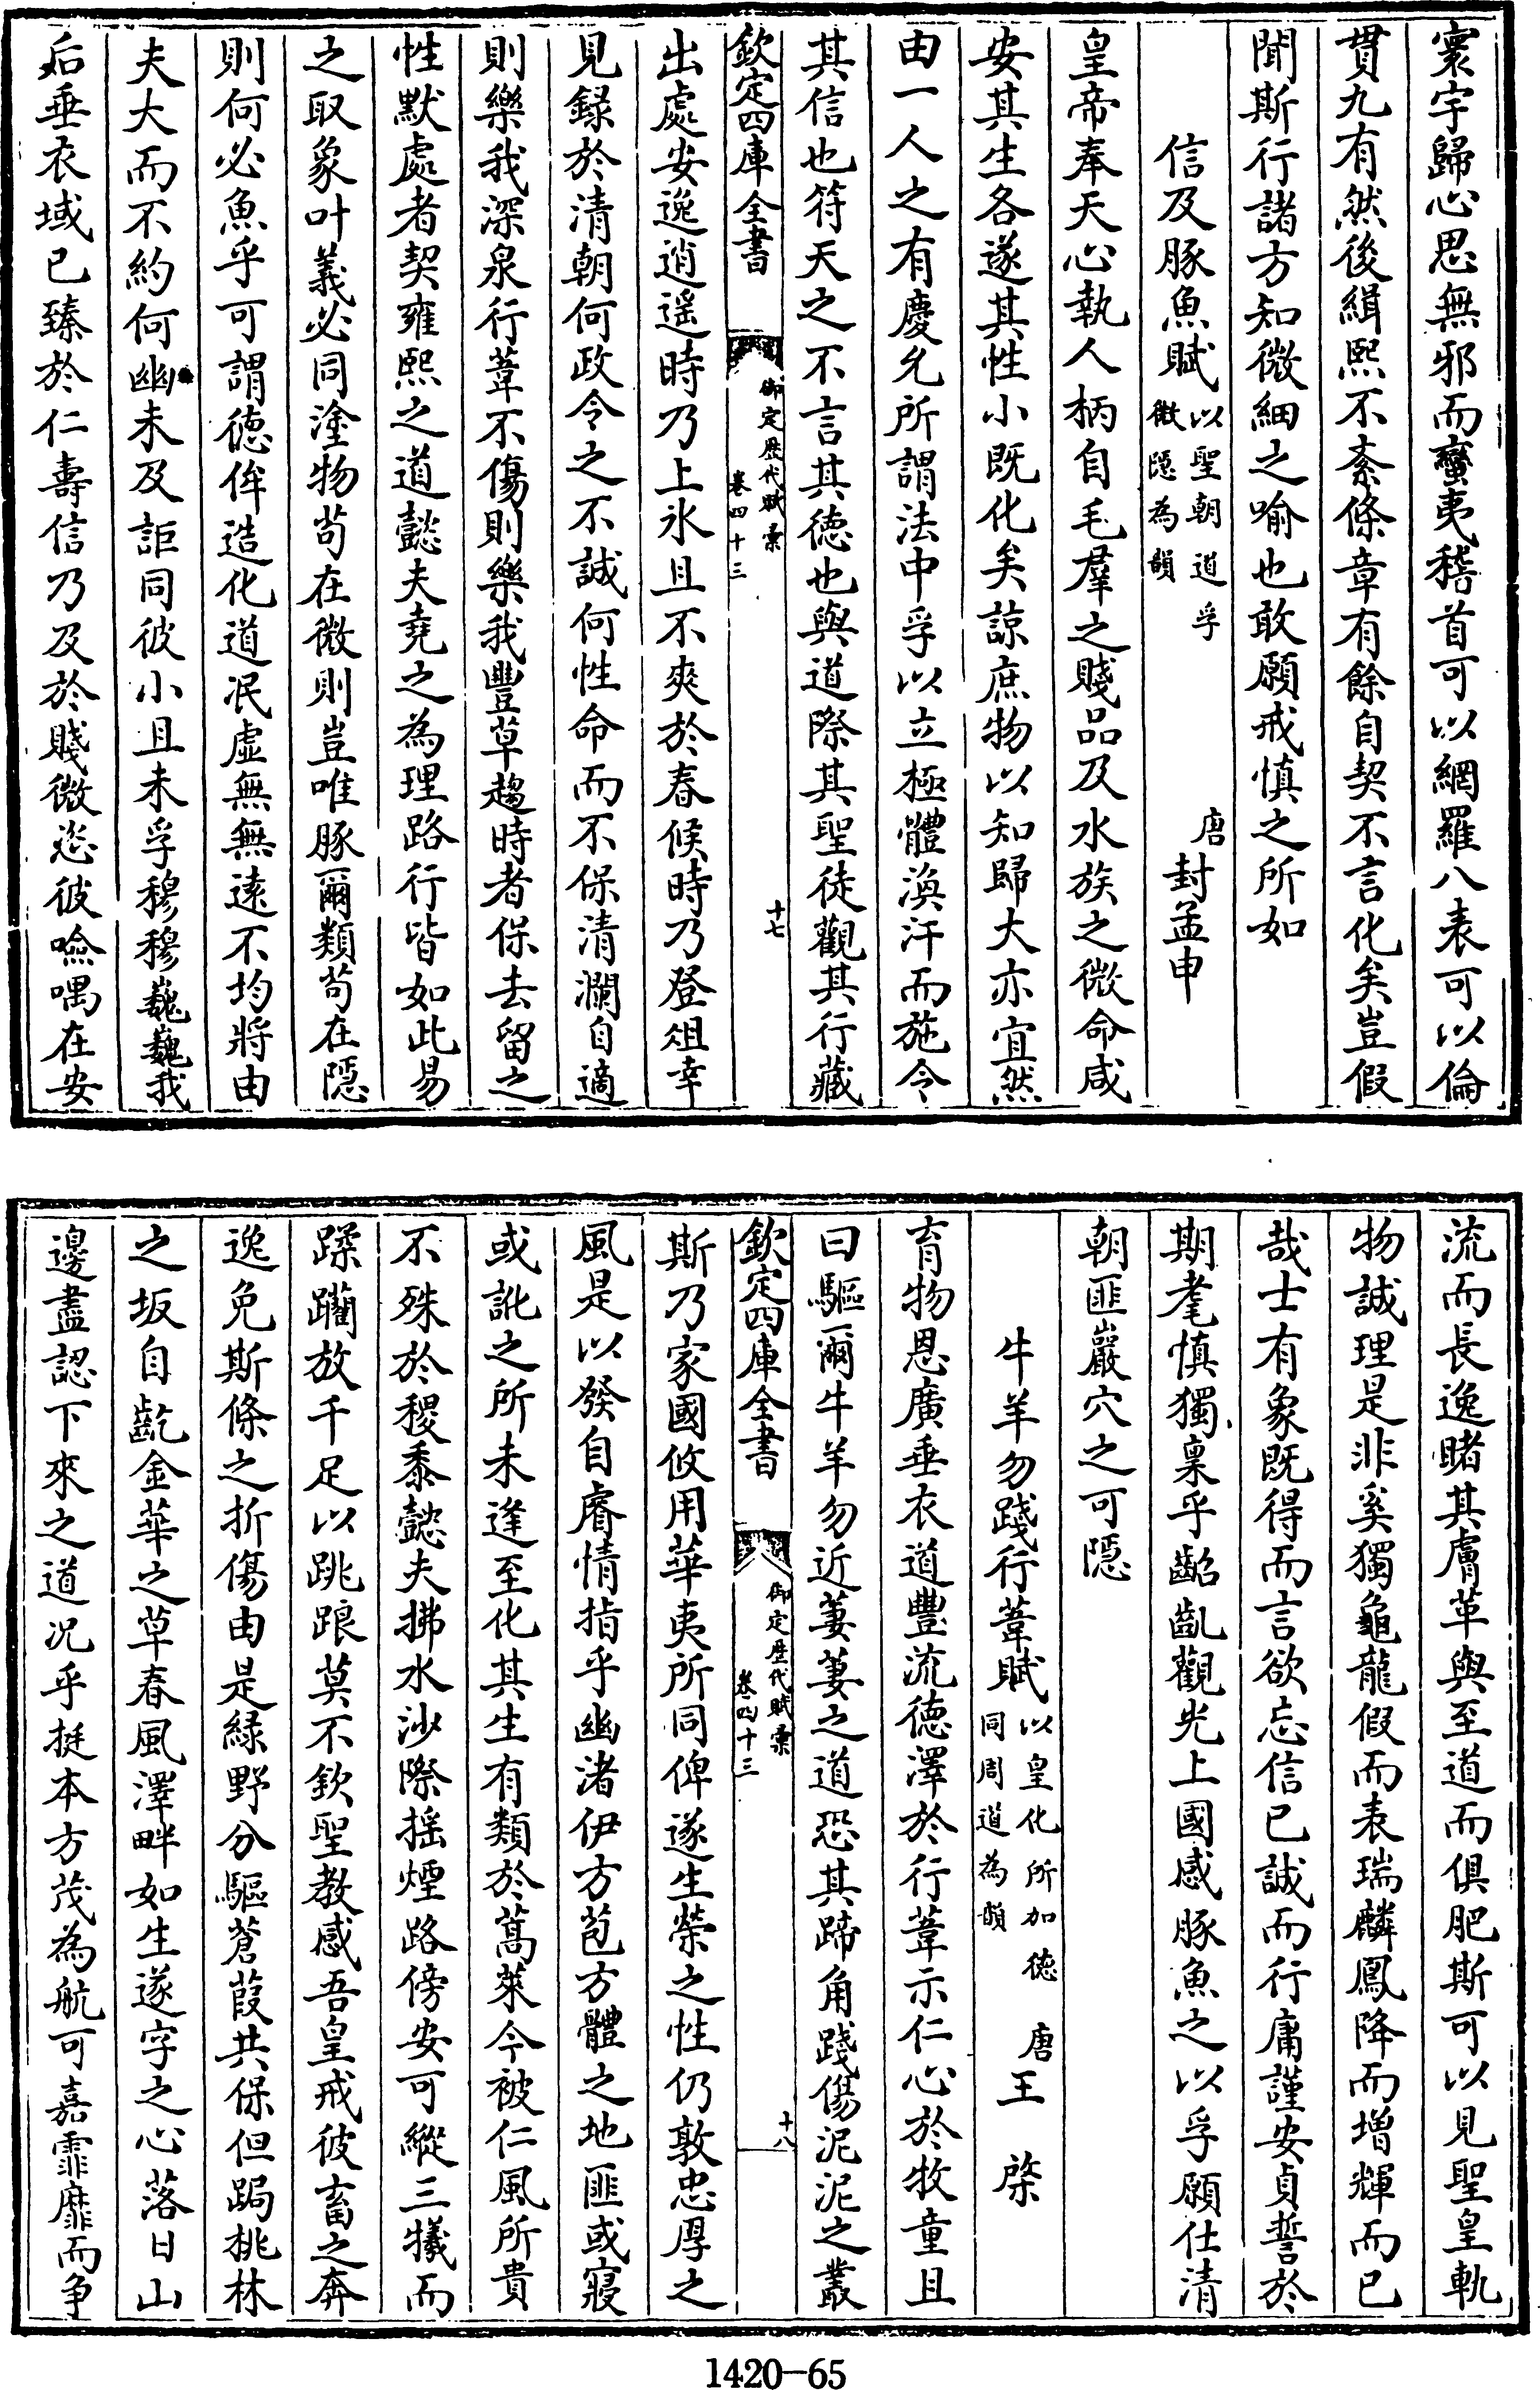 寰宇歸心思無邪而蠻夷稽首可以網羅八表可以倫
貫九有然後緝熙不紊條章有餘自契不言化矣豈假
聞斯行諸方知微細之喻也敢願戒慎之所如
信及豚魚賦以聖朝道孚微隱為韻 唐封孟申
皇帝奉天心執人柄自毛羣之賤品及水族之微命咸
安其生各遂其性小既化矣諒庶物以知歸大亦宜然
由一人之有慶允所謂法中孚以立極體渙汗而施令
其信也符天之不言其徳也與道際其聖徒觀其行藏
欽定四庫全書 御定歴代賦彙卷四十三 十七
出處安逸逍遥時乃上氷且不爽於春候時乃登俎幸
見録於清朝何政令之不誠何性命而不保清瀾自適
則樂我深泉行葦不傷則樂我豐草趨時者保去留之
性默處者契雍熙之道懿夫堯之為理路行皆如此易
之取象叶義必同塗物苟在微則豈唯豚爾類苟在隱
則何必魚乎可謂徳侔造化道冺虛無無逺不均將由
夫大而不約何幽未及詎同彼小且未孚穆穆巍巍我
后垂衣域已臻於仁壽信乃及於賤微恣彼噞喁在安
流而長逸睹其膚革與至道而俱肥斯可以見聖皇軌
物誠理是非奚獨龜龍假而表瑞麟鳳降而増輝而已
哉士有象既得而言欲忘信已誠而行庸謹安貞誓於
期耄慎獨稟乎齠齓觀光上國感豚魚之以孚願仕清
朝匪巖穴之可隠
牛羊勿踐行葦賦以皇化所加徳同周道為韻 唐王棨
育物恩廣垂衣道豐流徳澤於行葦示仁心於牧童且
曰驅爾牛羊勿近萋萋之道恐其蹄角踐傷泥泥之叢
欽定四庫全書 御定歴代賦彙卷四十三 十八
斯乃家國攸用華夷所同俾遂生榮之性仍敦忠厚之
風是以發自睿情指乎幽渚伊方苞方體之地匪或寢
或訛之所未逢至化其生有類於蒿萊今被仁風所貴
不殊於稷黍懿夫拂水沙際摇煙路傍安可縱三犧而
蹂躪放千足以跳踉莫不欽聖教感吾皇戒彼畜之奔
逸免斯條之折傷由是緑野分驅蒼葭共保但跼桃林
之坂自齕金華之草春風澤畔如生遂字之心落日山
邊盡認下來之道況乎挺本方茂為航可嘉霏靡而争
1420-65